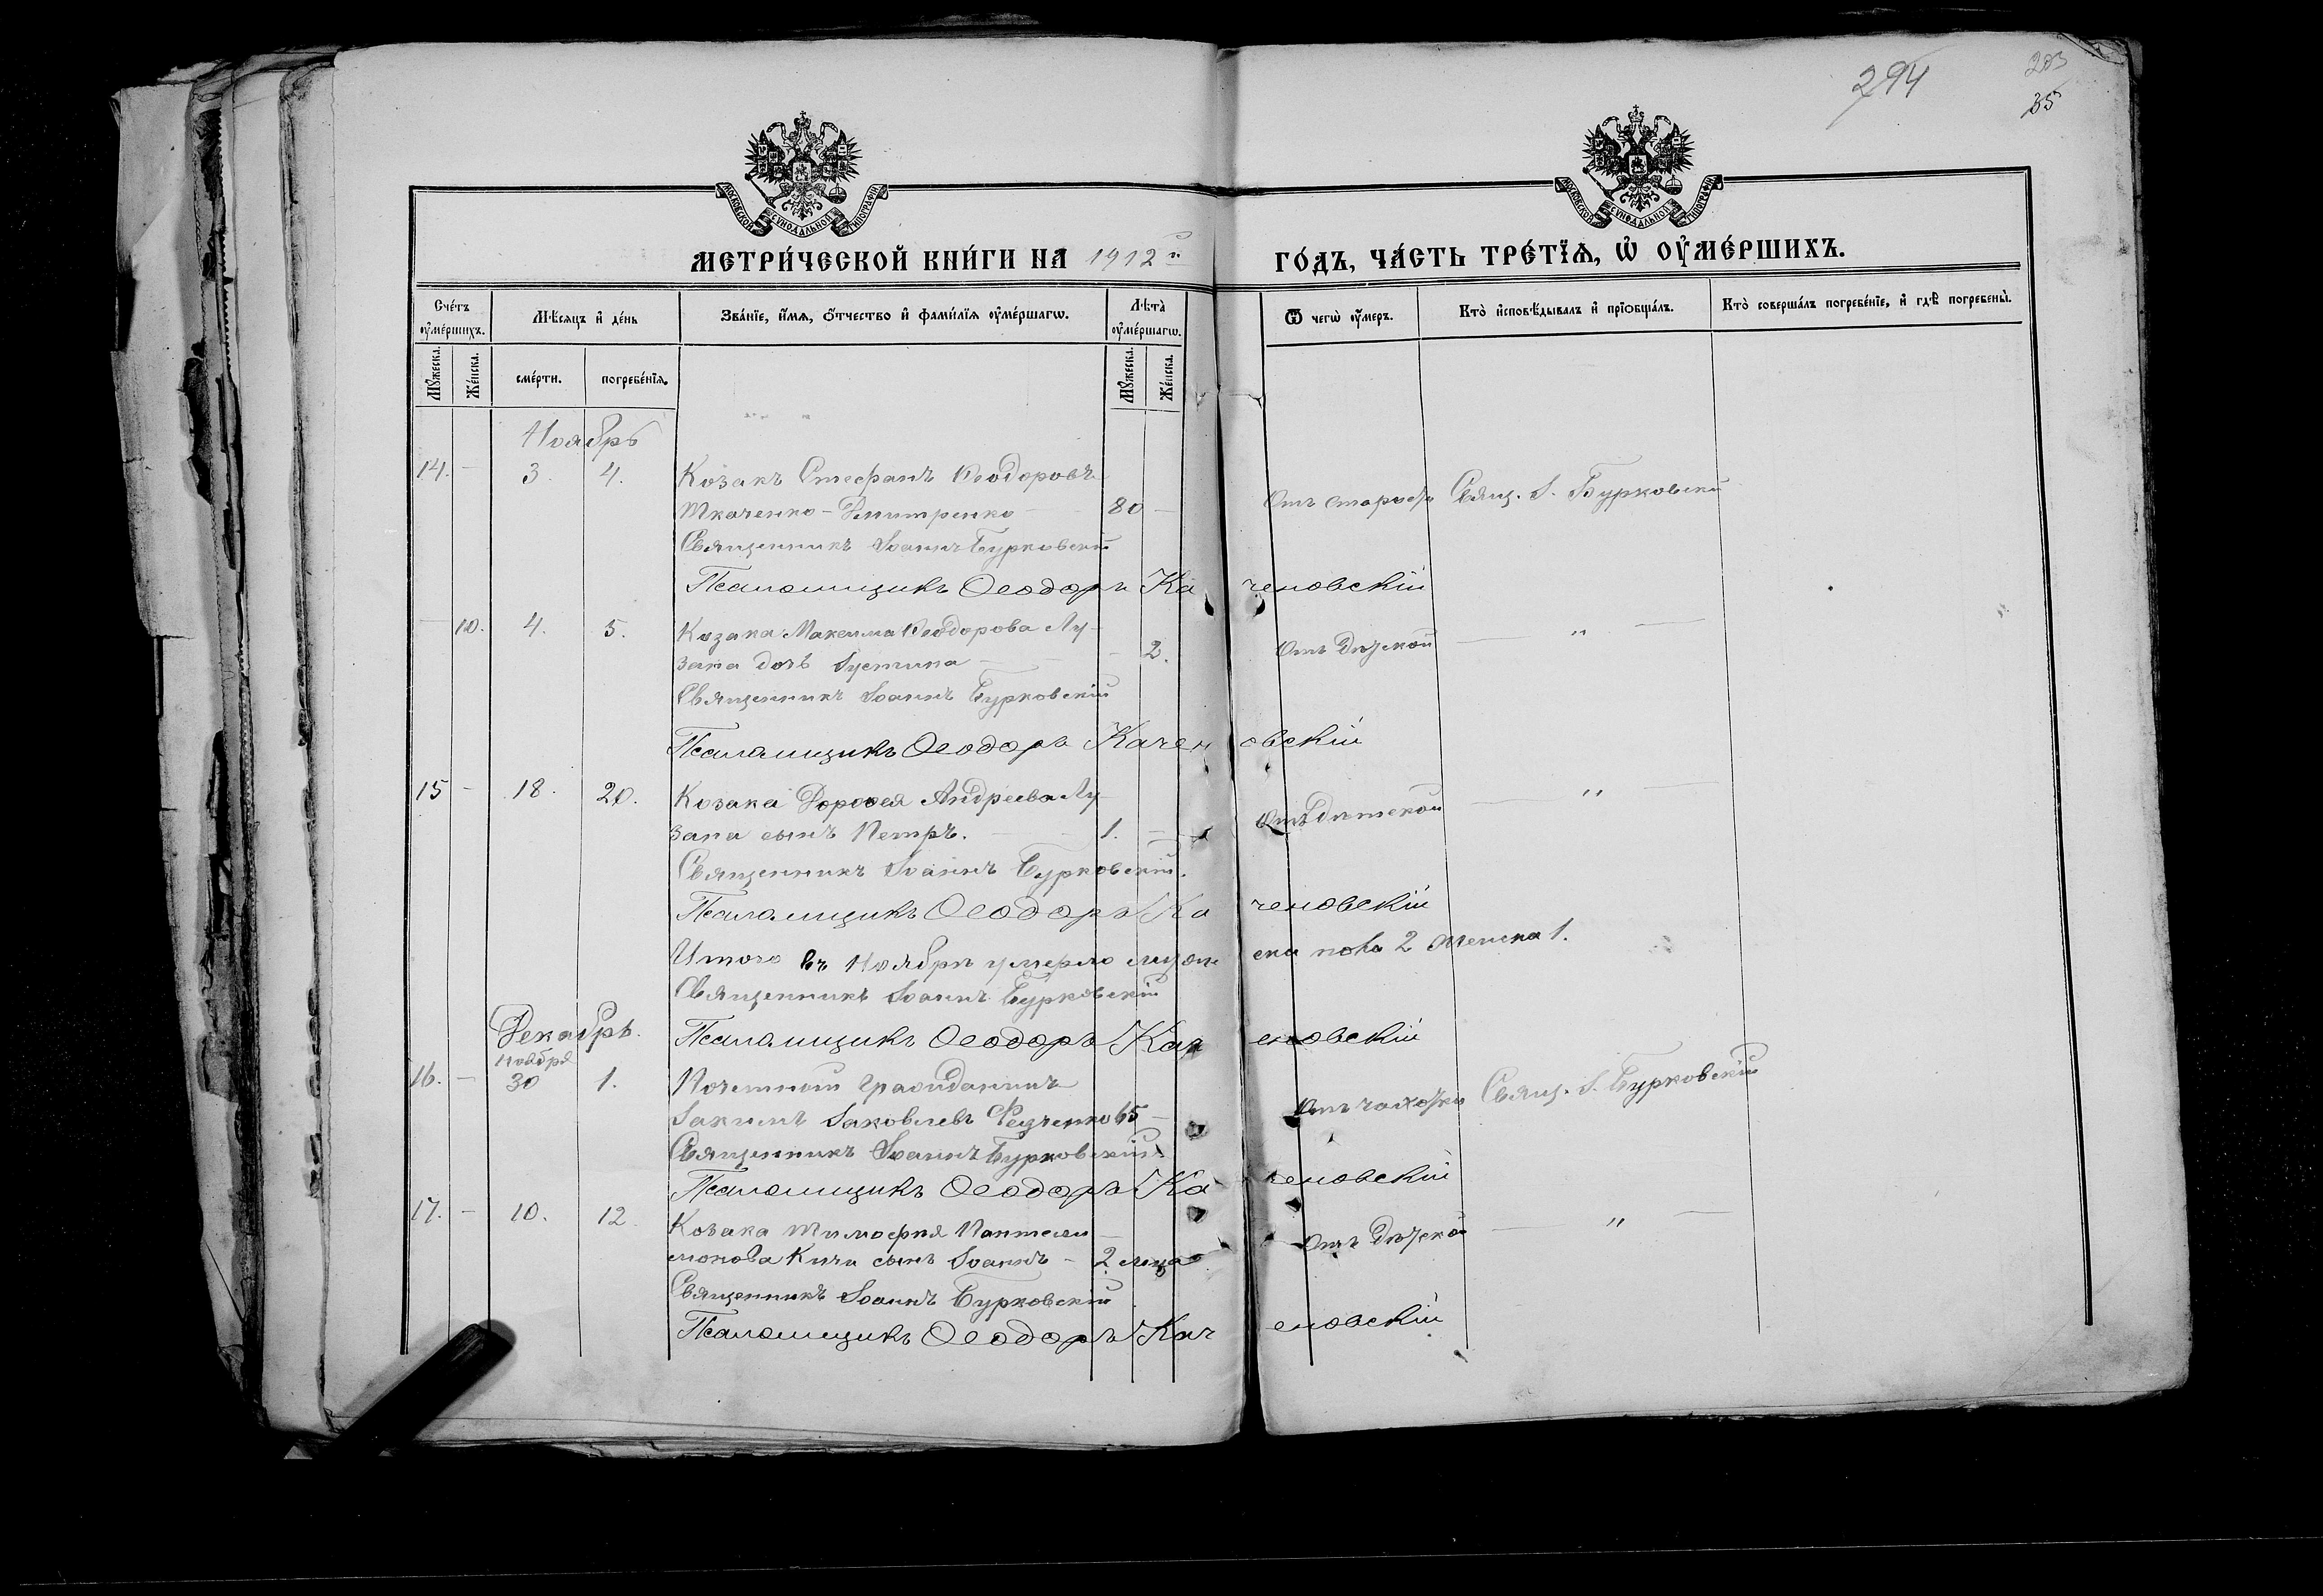 294
203
35
МОСКОВСКОЙ СУНОДАЛЬНОЙ ТИПОГРАФІИ
МОСКОВСКОЙ СУНОДАЛЬНОЙ ТИПОГРАФІИ
МЕТРИ́ЧЕСКОЙ КНИ́ГИ НА 1912й ГО́ДЪ, ЧА́СТЬ ТРЕ́ТЇѦ, Ѡ҆ ОУ҆МЕ́РШИХЪ.
Сче́тъ оу҆ме́ршихъ.
Мѣ́сяцъ и҆ де́нь
Зва́нїе, и҆́мѧ, ѻ҆́тчество и҆ фами́лїѧ оу҆ме́ршагѡ.
Лѣ̀та оу҆ме́ршагѡ.
Ѿ чегѡ̀ оу҆́меръ.
Кто̀ и҆сповѣ́дывалъ и҆ прїобща́лъ.
Кто̀ соверша́лъ погребе́нїе, и҆ гдѣ̀ погребены̀.
Мꙋ́жеска.
Же́нска.
сме́рти.
погребе́нїѧ.
Мꙋ́жеска.
Же́нска.
Ноябрь
14. - 3. 4. Козакъ Стефанъ Ѳеодоровъ
Ткаченко-Дмитренко - 80 - Отъ старости Свящ. І. Бурковскій
Священникъ Іоаннъ Бурковскій
Псаломщикъ Ѳеодоръ Каченовскій
- 10. 4. 5. Козака Максима Ѳеодорова Лу-
зана дочь Іустина - - 2. Отъ дѣтской - " -
Священникъ Іоаннъ Бурковскій
Псаломщикъ Ѳеодоръ Каченовскій
15 - 18. 20. Козака Дороѳея Андреева Лу-
зана сынъ Петръ. - 1. - Отъ дѣтской - " -
Священникъ Іоаннъ Бурковскій.
Псаломщикъ Ѳеодоръ Каченовскій
Итого въ Ноябрѣ умерло мужеска пола 2 женска 1.
Священникъ Іоаннъ Бурковскій
Декабрь. Псаломщикъ Ѳеодоръ Каченовскій
Ноября
16. - 30 1. Почетный Гражданинъ
Іакимъ Іаковлевъ Федченко 65 - Отъ чахотки Свящ. І. Бурковскій
Священникъ Іоаннъ Бурковскій
Псаломщикъ Ѳеодоръ Каченовскій
17. - 10. 12. Козака Тимофея Пантелеи-
монова сынъ Іоаннъ - 2 мца Отъ дѣтской - " -
Священникъ Іоаннъ Бурковскій
Псаломщикъ Ѳеодоръ Каченовскій